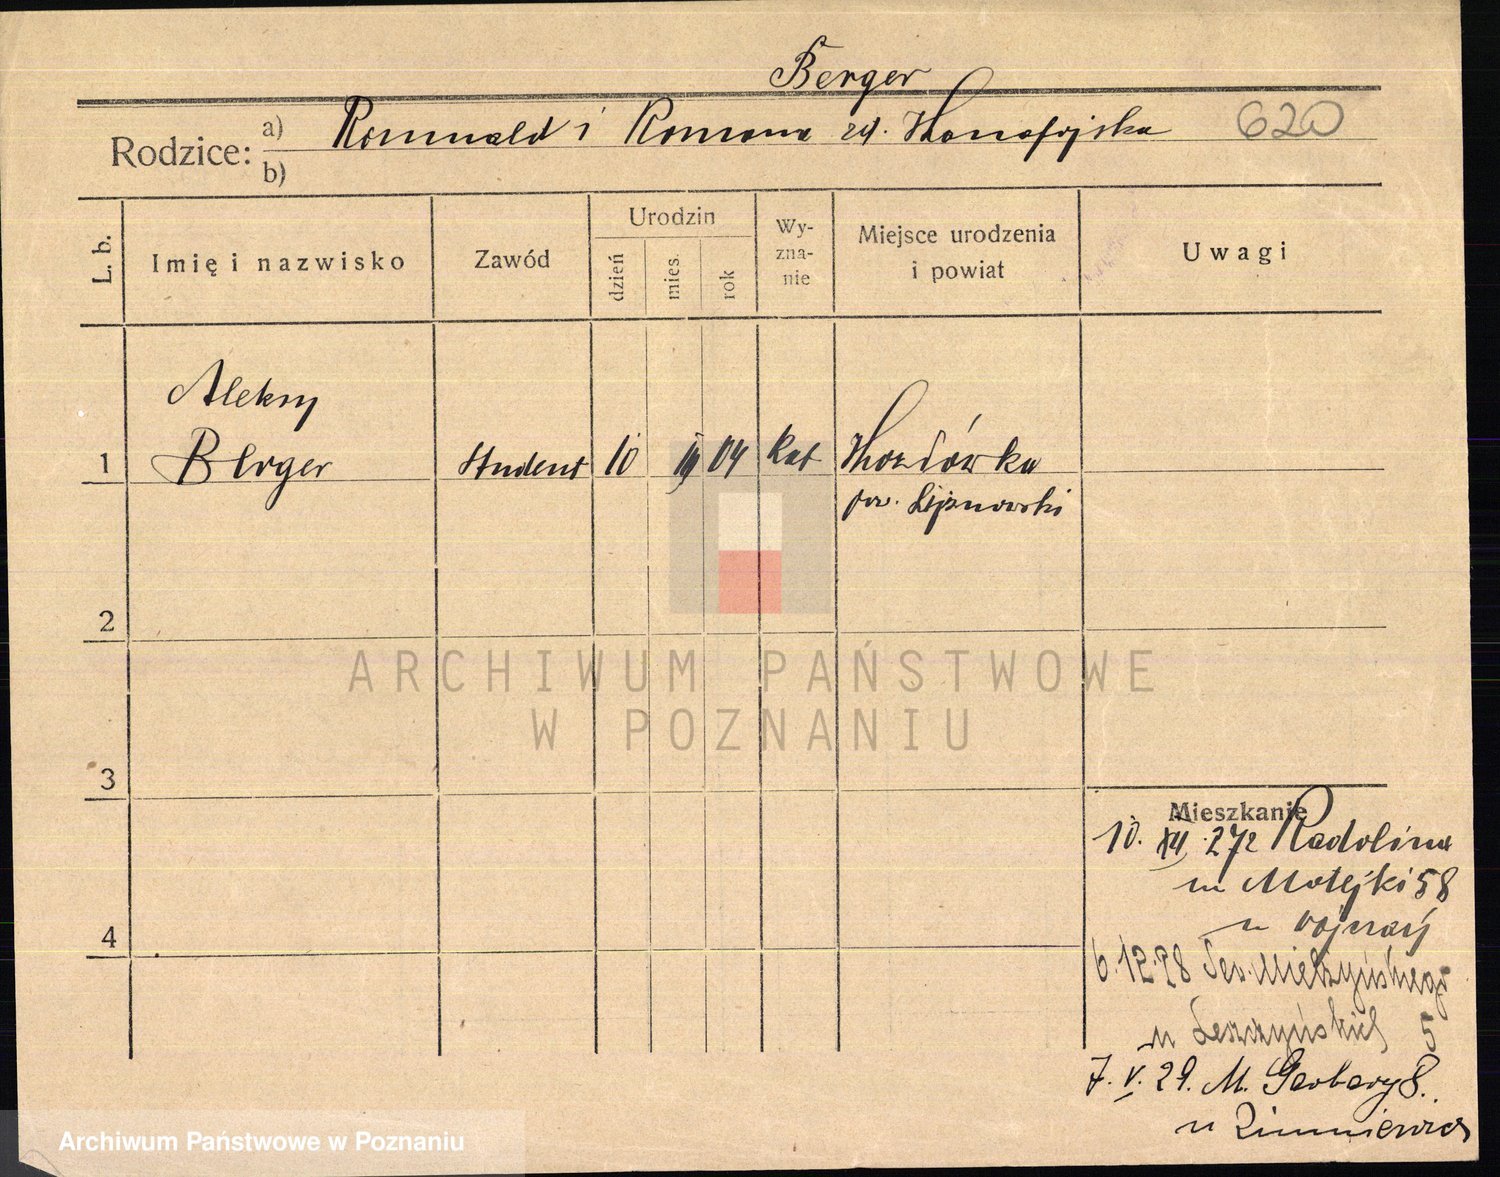 Berger
Rodzice: a) Romuald i Romana zd.
620
b)
L. b.
Imię i nazwisko
Zawód
Urodzin
dzień
mies.
rok
Wy-
zna-
nie
Miejsce urodzenia
i powiat
Uwagi
Aleksy
1 Berger student 10 04 kat
pow. Lipnowski
2
ARCHIWUM PAŃSTWOWE
W POZNANIU
3
Mieszkanie
10. XII. 27 Radolina
u Motejki 58
4
6.12.28 Sew. Mielżyńskiego
u Leszczyńskich 5
7. V. 29. M. Garbary 8.
u Zimniewicz
Archiwum Państwowe w Poznaniu